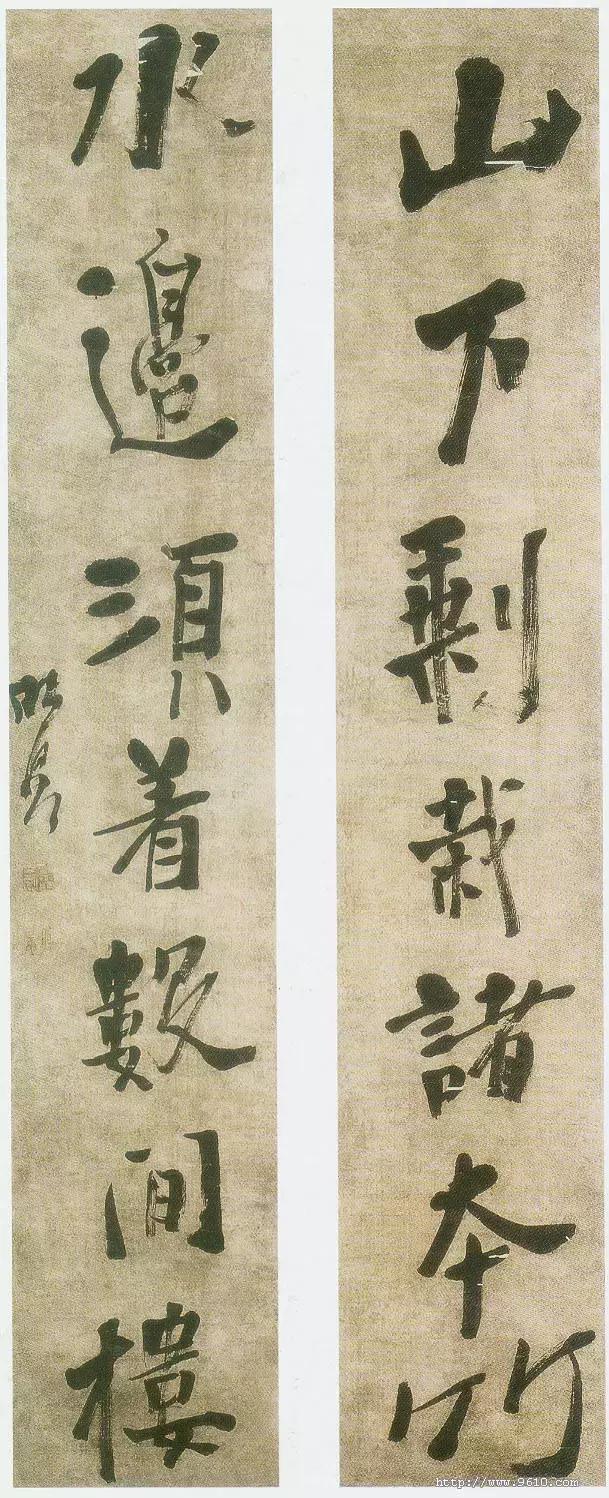 山下剩栽諸本竹
水邊須着數間樓
http://www.9610.com